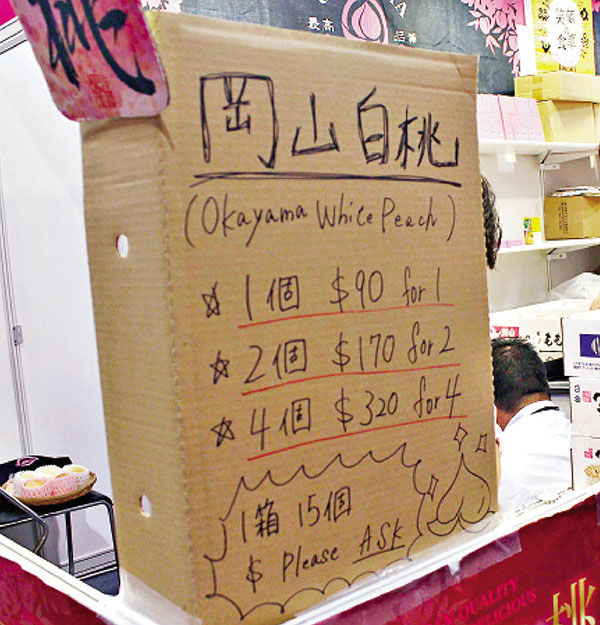 桃
最高
品
笑顔
食
岡山白桃
(Okayama White Peach)
☆ 1個 $90 for 1
☆ 2個 $170 for 2
☆ 4個 $320 for 4
1箱 15個
$ Please ASK
もも
QUALITY
DELICIOUS
桃